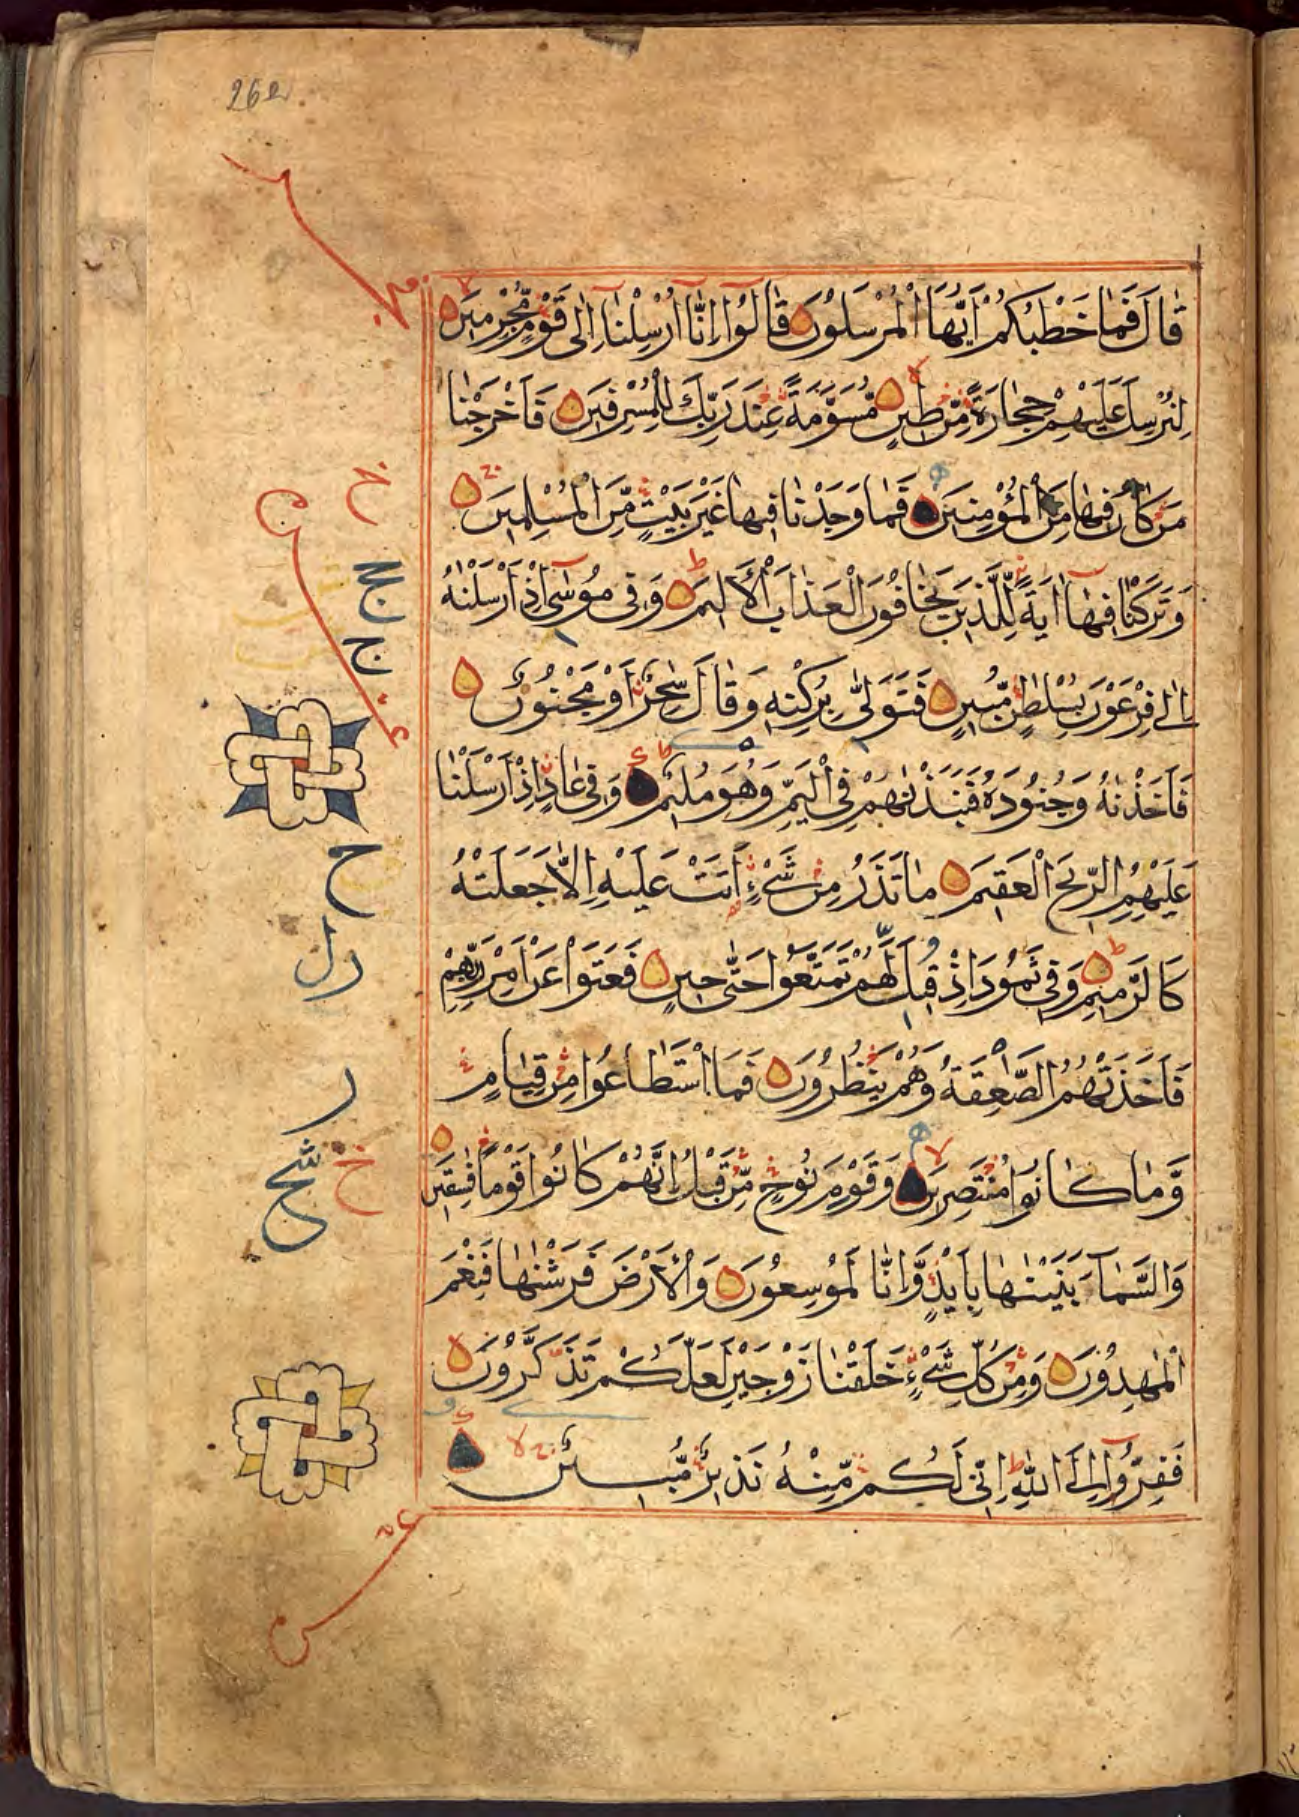 262
قَالَ فَمَا خَطْبُكُمْ اَيُّهَا الْمُرْسَلُوْنَ قَالُوْٓا اِنَّآ اُرْسِلْنَآ اِلٰى قَوْمٍ مُّجْرِمِيْنَ
لِنُرْسِلَ عَلَيْهِمْ حِجَارَةً مِّنْ طِيْنٍ مُّسَوَّمَةً عِنْدَ رَبِّكَ لِلْمُسْرِفِيْنَ فَاَخْرَجْنَا
مَنْ كَانَ فِيْهَا مِنَ الْمُؤْمِنِيْنَ فَمَا وَجَدْنَا فِيْهَا غَيْرَ بَيْتٍ مِّنَ الْمُسْلِمِيْنَ
وَتَرَكْنَا فِيْهَآ اٰيَةً لِّلَّذِيْنَ يَخَافُوْنَ الْعَذَابَ الْاَلِيْمَ وَفِىْ مُوْسٰٓى اِذْ اَرْسَلْنٰهُ
اِلٰى فِرْعَوْنَ بِسُلْطٰنٍ مُّبِيْنٍ فَتَوَلّٰى بِرُكْنِهٖ وَقَالَ سٰحِرٌ اَوْ مَجْنُوْنٌ
فَاَخَذْنٰهُ وَجُنُوْدَهٗ فَنَبَذْنٰهُمْ فِى الْيَمِّ وَهُوَ مُلِيْمٌ وَفِىْ عَادٍ اِذْ اَرْسَلْنَا
عَلَيْهِمُ الرِّيْحَ الْعَقِيْمَ مَا تَذَرُ مِنْ شَىْءٍ اَتَتْ عَلَيْهِ اِلَّا جَعَلَتْهُ
كَالرَّمِيْمِ وَفِىْ ثَمُوْدَ اِذْ قِيْلَ لَهُمْ تَمَتَّعُوْا حَتّٰى حِيْنٍ فَعَتَوْا عَنْ اَمْرِ رَبِّهِمْ
فَاَخَذَتْهُمُ الصّٰعِقَةُ وَهُمْ يَنْظُرُوْنَ فَمَا اسْتَطَاعُوْا مِنْ قِيَامٍ
وَّمَا كَانُوْا مُنْتَصِرِيْنَ وَقَوْمَ نُوْحٍ مِّنْ قَبْلُ اِنَّهُمْ كَانُوْا قَوْمًا فٰسِقِيْنَ
وَالسَّمَآءَ بَنَيْنٰهَا بِاَيْىدٍ وَّاِنَّا لَمُوْسِعُوْنَ وَالْاَرْضَ فَرَشْنٰهَا فَنِعْمَ
الْمٰهِدُوْنَ وَمِنْ كُلِّ شَىْءٍ خَلَقْنَا زَوْجَيْنِ لَعَلَّكُمْ تَذَكَّرُوْنَ
فَفِرُّوْٓا اِلَى اللّٰهِ اِنِّىْ لَكُمْ مِّنْهُ نَذِيْرٌ مُّبِيْنٌ